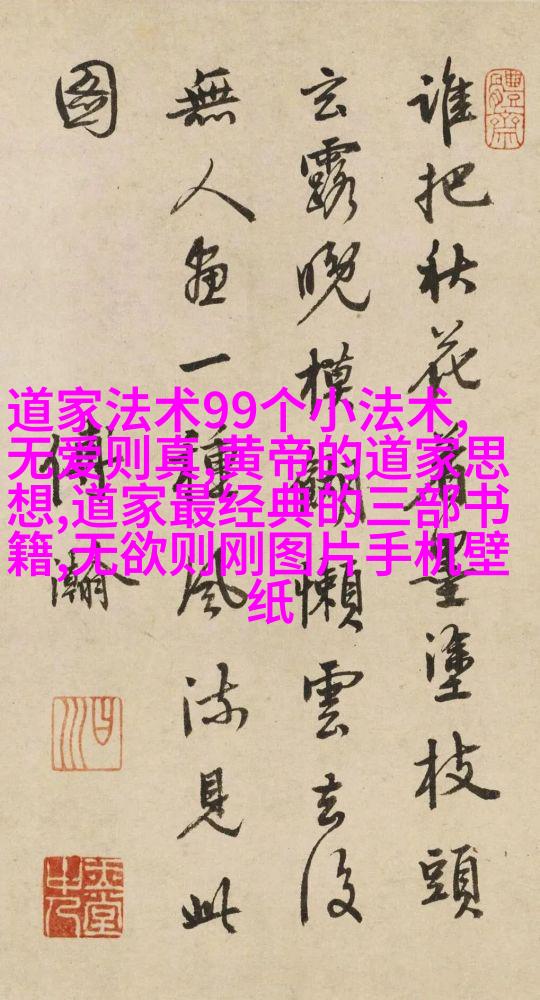 誰把秋花着墨塗枝頭
玄露晚模糊懶雲去後
無人畫一種風流見此
圖
傅瀚
體齋
曰川
道家法术99个小法术,
无爱则真,黄帝的道家思
想,道家最经典的三部书
籍,无欲则刚图片手机壁
纸